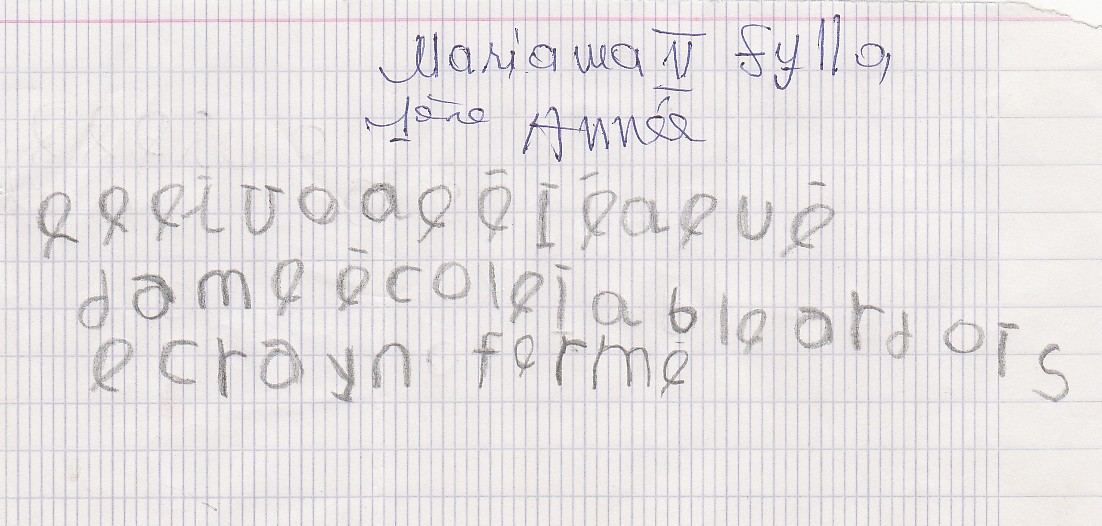 Mariama II Sylla
1ère Année
e e e i u o a e é i é a e u é
dame école table ardois
e crayn fermé